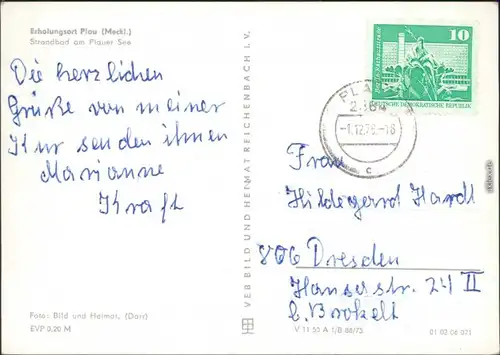 Erholungsort Plau (Meckl.)
Strandbad am Plauer See
Die herzlichen
Grüße von meiner
Kur senden ihnen
Marianne
Kraft
Foto: Bild und Heimat, (Darr)
EVP 0,20 M
VEB BILD UND HEIMAT REICHENBACH i. V.
10
DEUTSCHE DEMOKRATISCHE REPUBLIK
PLAU
-1.12.76.-18
c
Frau
Hildegard Hardt
806 Dresden
Hansastr. 24 II
b. Brokelt
V 11 50 A 1/B 88/75
01 02 06 071